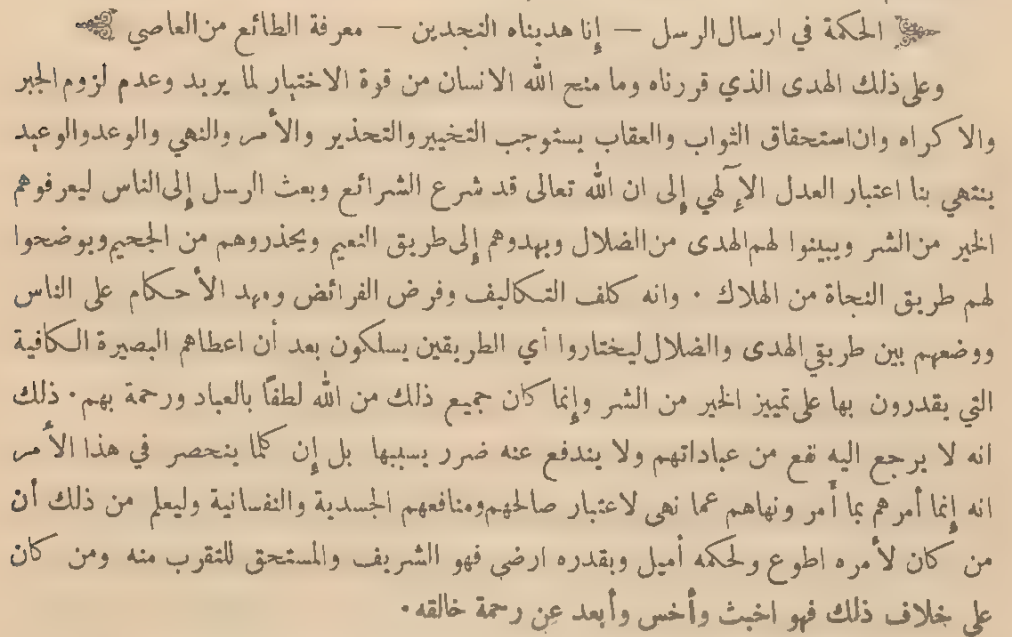 الحكمة في ارسال الرسل — إنا هديناه النجدين — معرفة الطائع من العاصي
وعلى ذلك الهدى الذي قررناه وما منح الله الانسان من قوة الاختيار لما يريد وعدم لزوم الجبر
والاكراه وان استحقاق الثواب والعقاب يستوجب التخيير والتحذير والأمر والنهي والوعد والوعيد
ينتهي بنا اعتبار العدل الإلهي إلى ان الله تعالى قد شرع الشرائع وبعث الرسل إلى الناس ليعرفوهم
الخير من الشر ويبينوا لهم الهدى من الضلال ويهدوهم إلى طريق النعيم ويحذروهم من الجحيم ويوضحوا
لهم طريق النجاة من الهلاك · وانه كلف التكاليف وفرض الفرائض ومهد الأحكام على الناس
ووضعهم بين طريقي الهدى والضلال ليختاروا أي الطريقين يسلكون بعد أن اعطاهم البصيرة الكافية
التي يقدرون بها على تمييز الخير من الشر وإنما كان جميع ذلك من الله لطفًا بالعباد ورحمة بهم · ذلك
انه لا يرجع اليه نفع من عباداتهم ولا يندفع عنه ضرر بسببها بل إن كلما ينحصر في هذا الأمر
انه إنما أمرهم بما أمر ونهاهم عما نهى لاعتبار صالحهم ومنافعهم الجسدية والنفسانية وليعلم من ذلك أن
من كان لأمره اطوع ولحكمه أميل وبقدره ارضى فهو الشريف والمستحق للتقرب منه ومن كان
على خلاف ذلك فهو اخبث وأخس وأبعد عن رحمة خالقه ·